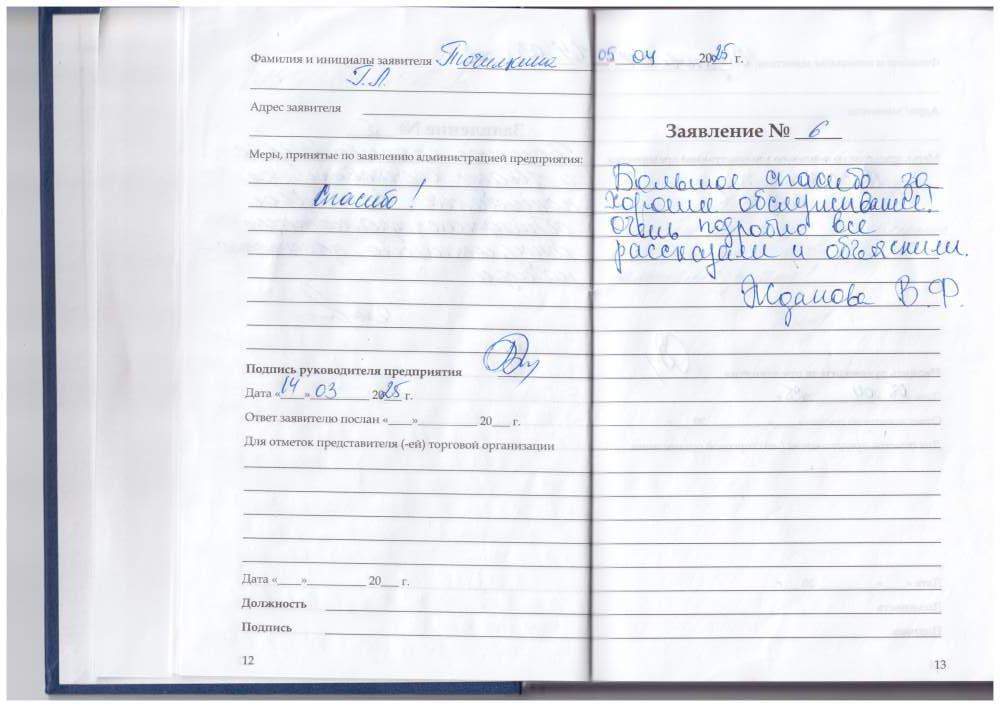 Фамилия и инициалы заявителя Точилкина
Г.Л.
Адрес заявителя
Меры, принятые по заявлению администрацией предприятия:
Спасибо!
Подпись руководителя предприятия
Дата «14» 03 2025 г.
Ответ заявителю послан «____»__________ 20___ г.
Для отметок представителя (-ей) торговой организации
Дата «____»__________ 20___ г.
Должность
Подпись
12
05 04 2025 г.
Заявление № 6
Большое спасибо за
хорошее обслуживание!
Очень подробно все
рассказали и объяснили.
Жданова В.Ф.
13